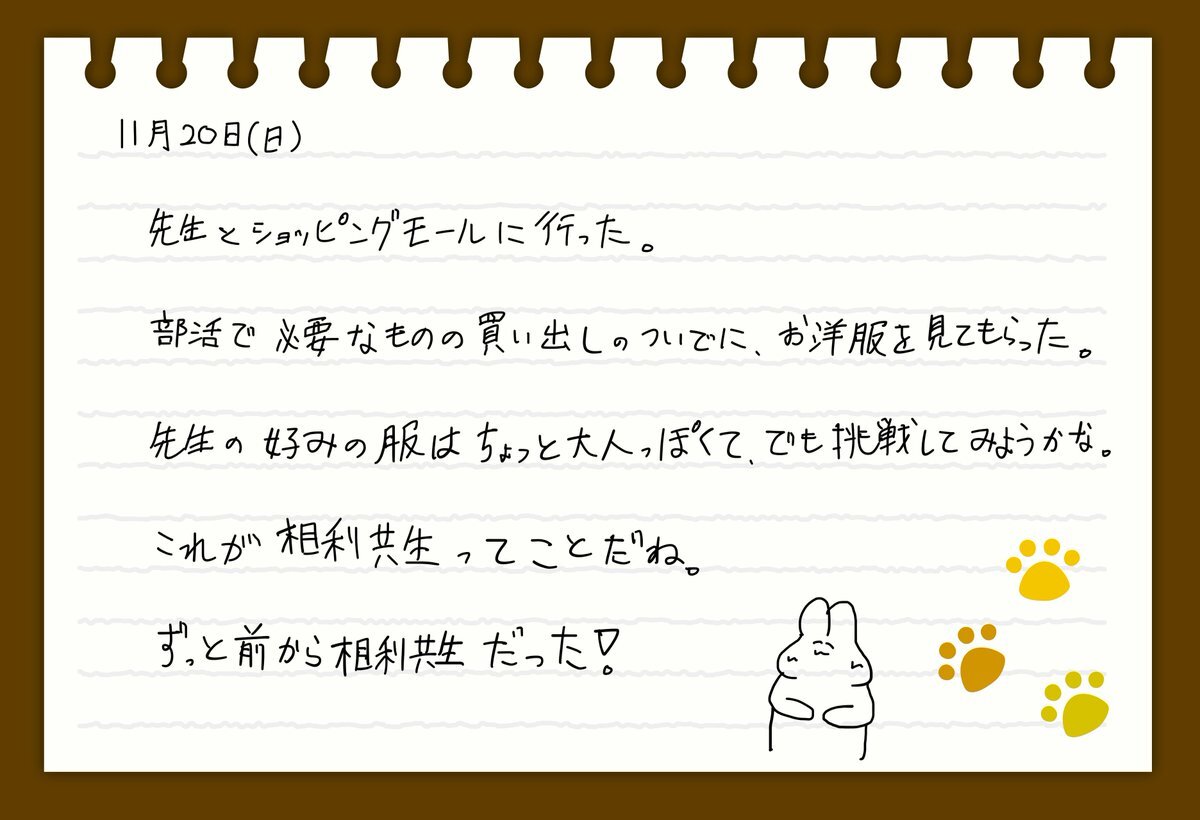 11月20日(日)
先生とショッピングモールに行った。
部活で必要なものの買い出しのついでに、お洋服を見てもらった。
先生の好みの服はちょっと大人っぽくて、でも挑戦してみようかな。
これが相利共生ってことだね。
ずっと前から相利共生だった!